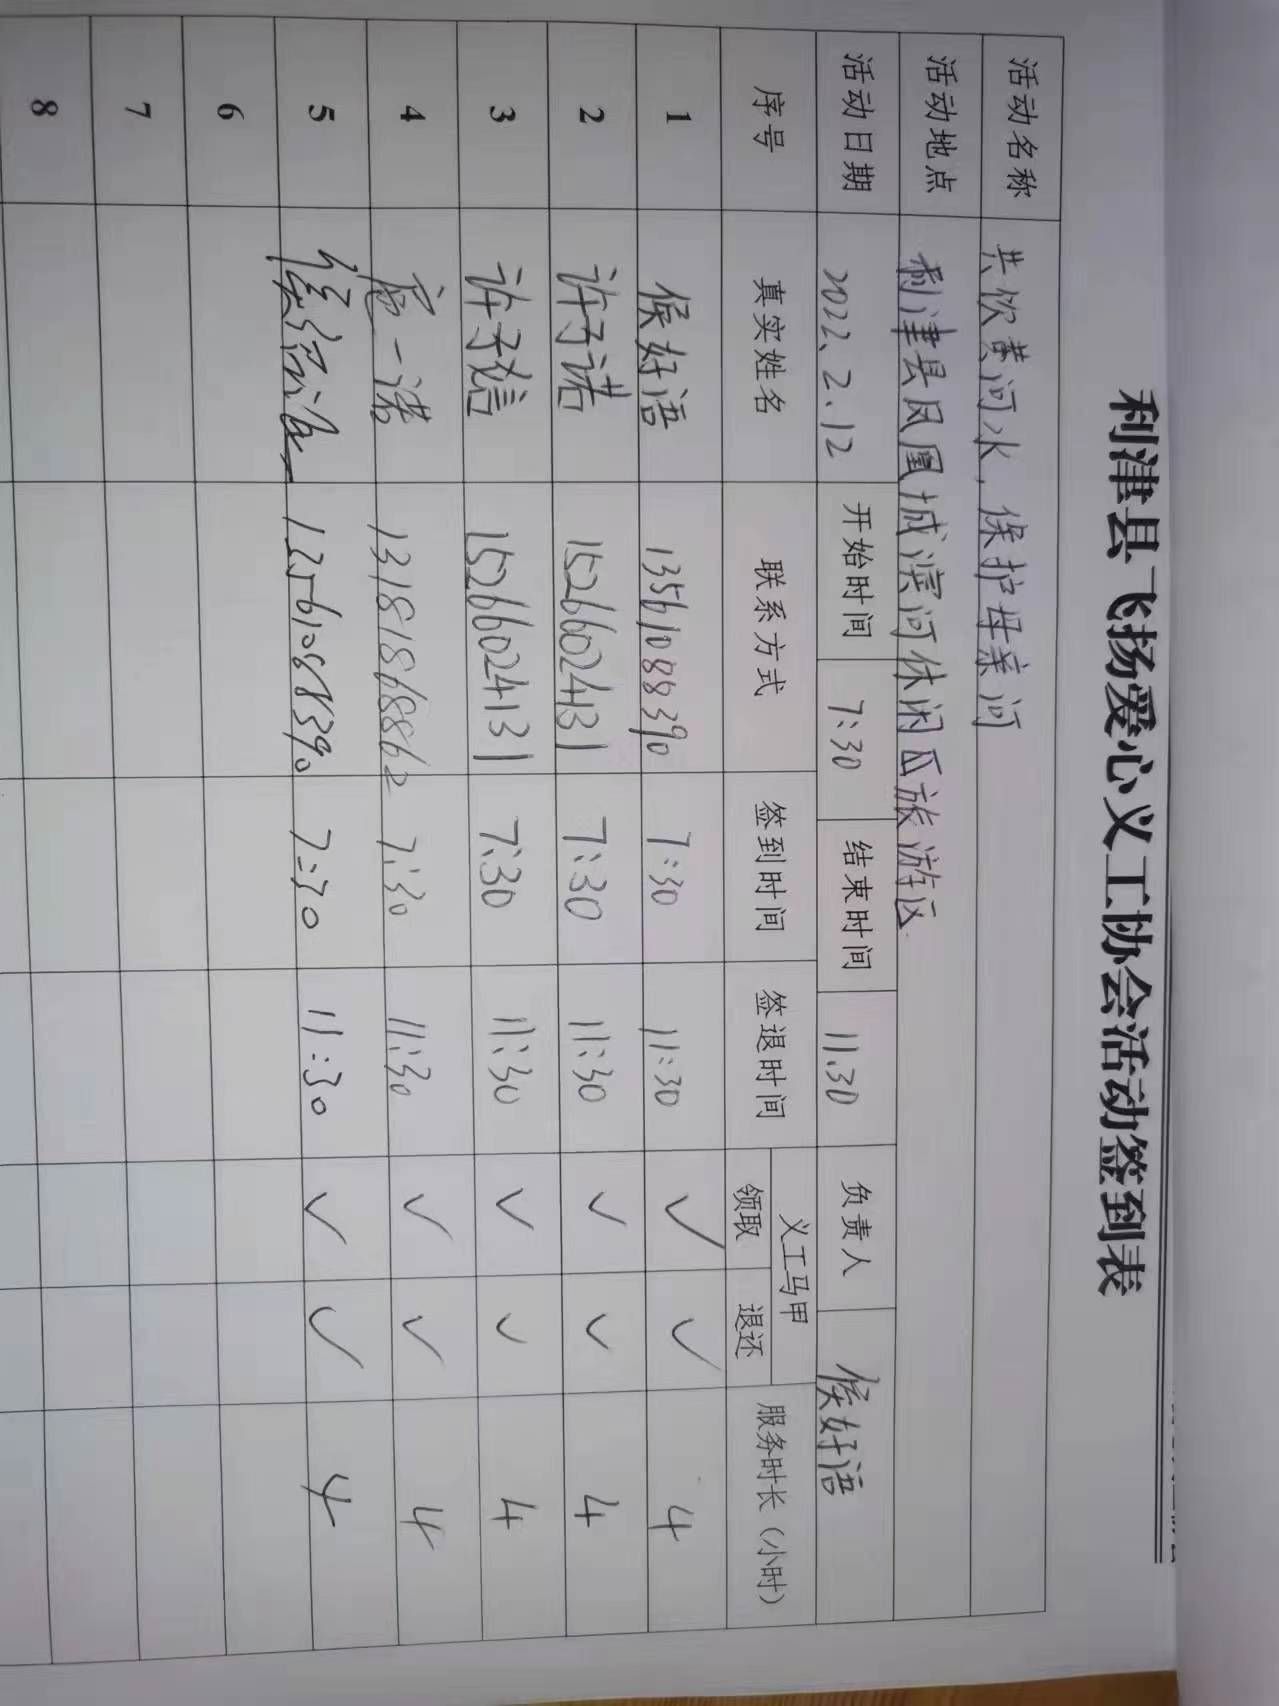 利津县飞扬爱心义工协会活动签到表
活动名称 共饮黄河水,保护母亲河
活动地点 利津县凤凰城滨河休闲区旅游区
活动日期 2022、2.12 开始时间 7:30 结束时间 11:30 负责人 侯好语
序号 真实姓名 联系方式 签到时间 签退时间 义工马甲 服务时长(小时)
领取 退还
1 侯好语 13561088390 7:30 11:30 ✓ ✓ 4
2 许子诺 15266024131 7:30 11:30 ✓ ✓ 4
3 许子信 15266024131 7:30 11:30 ✓ ✓ 4
4 一诺 13181868862 7:30 11:30 ✓ ✓ 4
5 13561088390 7:30 11:30 ✓ ✓ 4
6
7
8